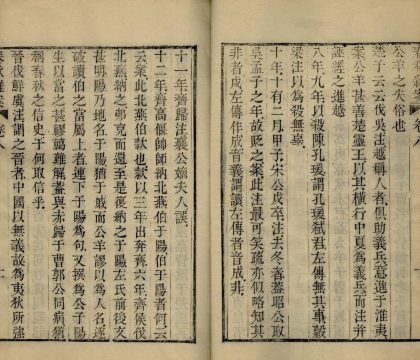 公羊之失俗也
予云云伐吳注越稱人者俱助義兵意進于淮夷
案公羊甚善楚靈王以其橫行中夏為義兵而注并
誣經之進越
八年九年以殺陳孔瑗謂孔瑗弑君左傳無其事穀
梁注以為殺無辜
十年十有二月甲子宋公戌卒注去冬者蓋昭公取
吳孟子之年故貶之案此注最可笑疏亦似略知其
非者成左傳作成晉義謂讀左傳者音成非
十一年齊歸注襄公嫡夫人誤
十二年齊高偃師師納北燕伯于陽伯于陽者何云
云案此北燕伯款也款以三年出奔齊六年齊侯伐
北燕納之弗克而還至是復納之于陽左氏前後文
甚明陽乃地名于陽猶于戚而公羊謬以為人名逐
破讀伯之當屬上者連下于陽為句又撰為公子陽
生以當之甚謬難解蓋與赤歸于曹郭公同病猶
稱春秋之信史于何取信乎
晉伐鮮虞注謂之晉者中國以無義故為夷狄所強
卷八